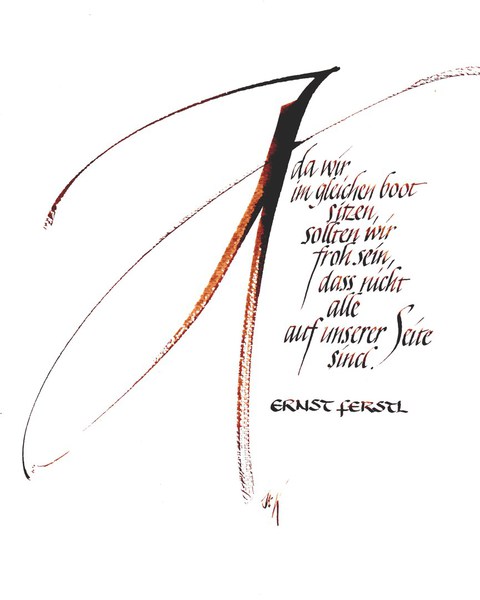 A
da wir
im gleichen boot
sitzen,
sollten wir
froh sein,
dass nicht
alle
auf unserer Seite
sind.
ERNST FERSTL